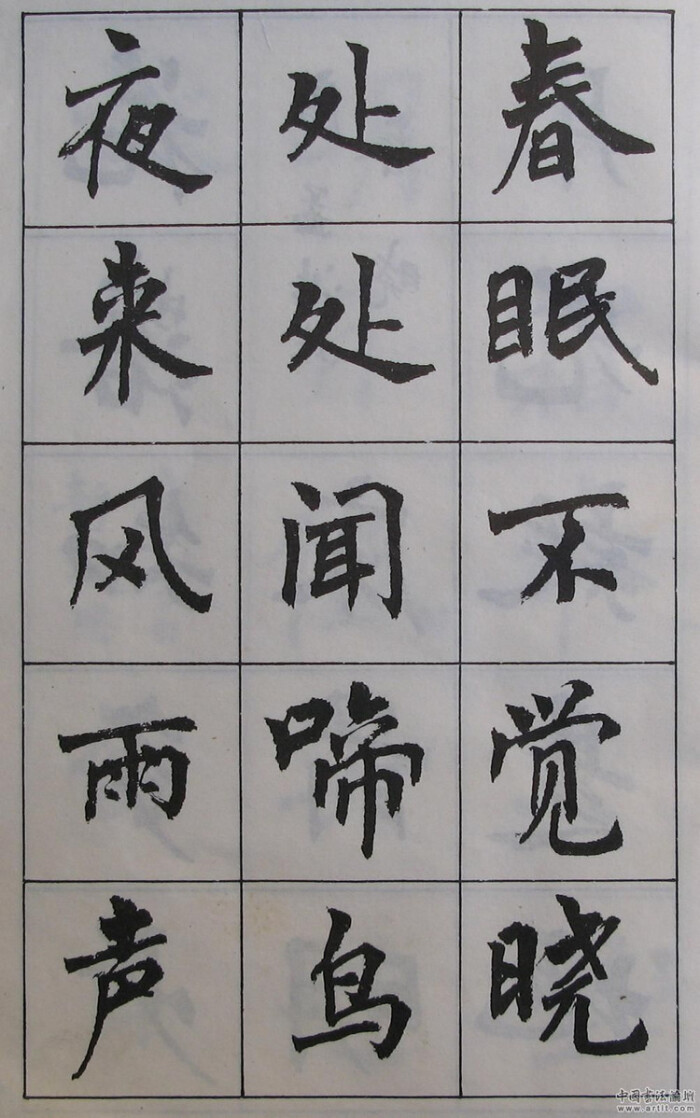 春眠不觉晓
处处闻啼鸟
夜来风雨声
中国书法论坛
www.artit.com